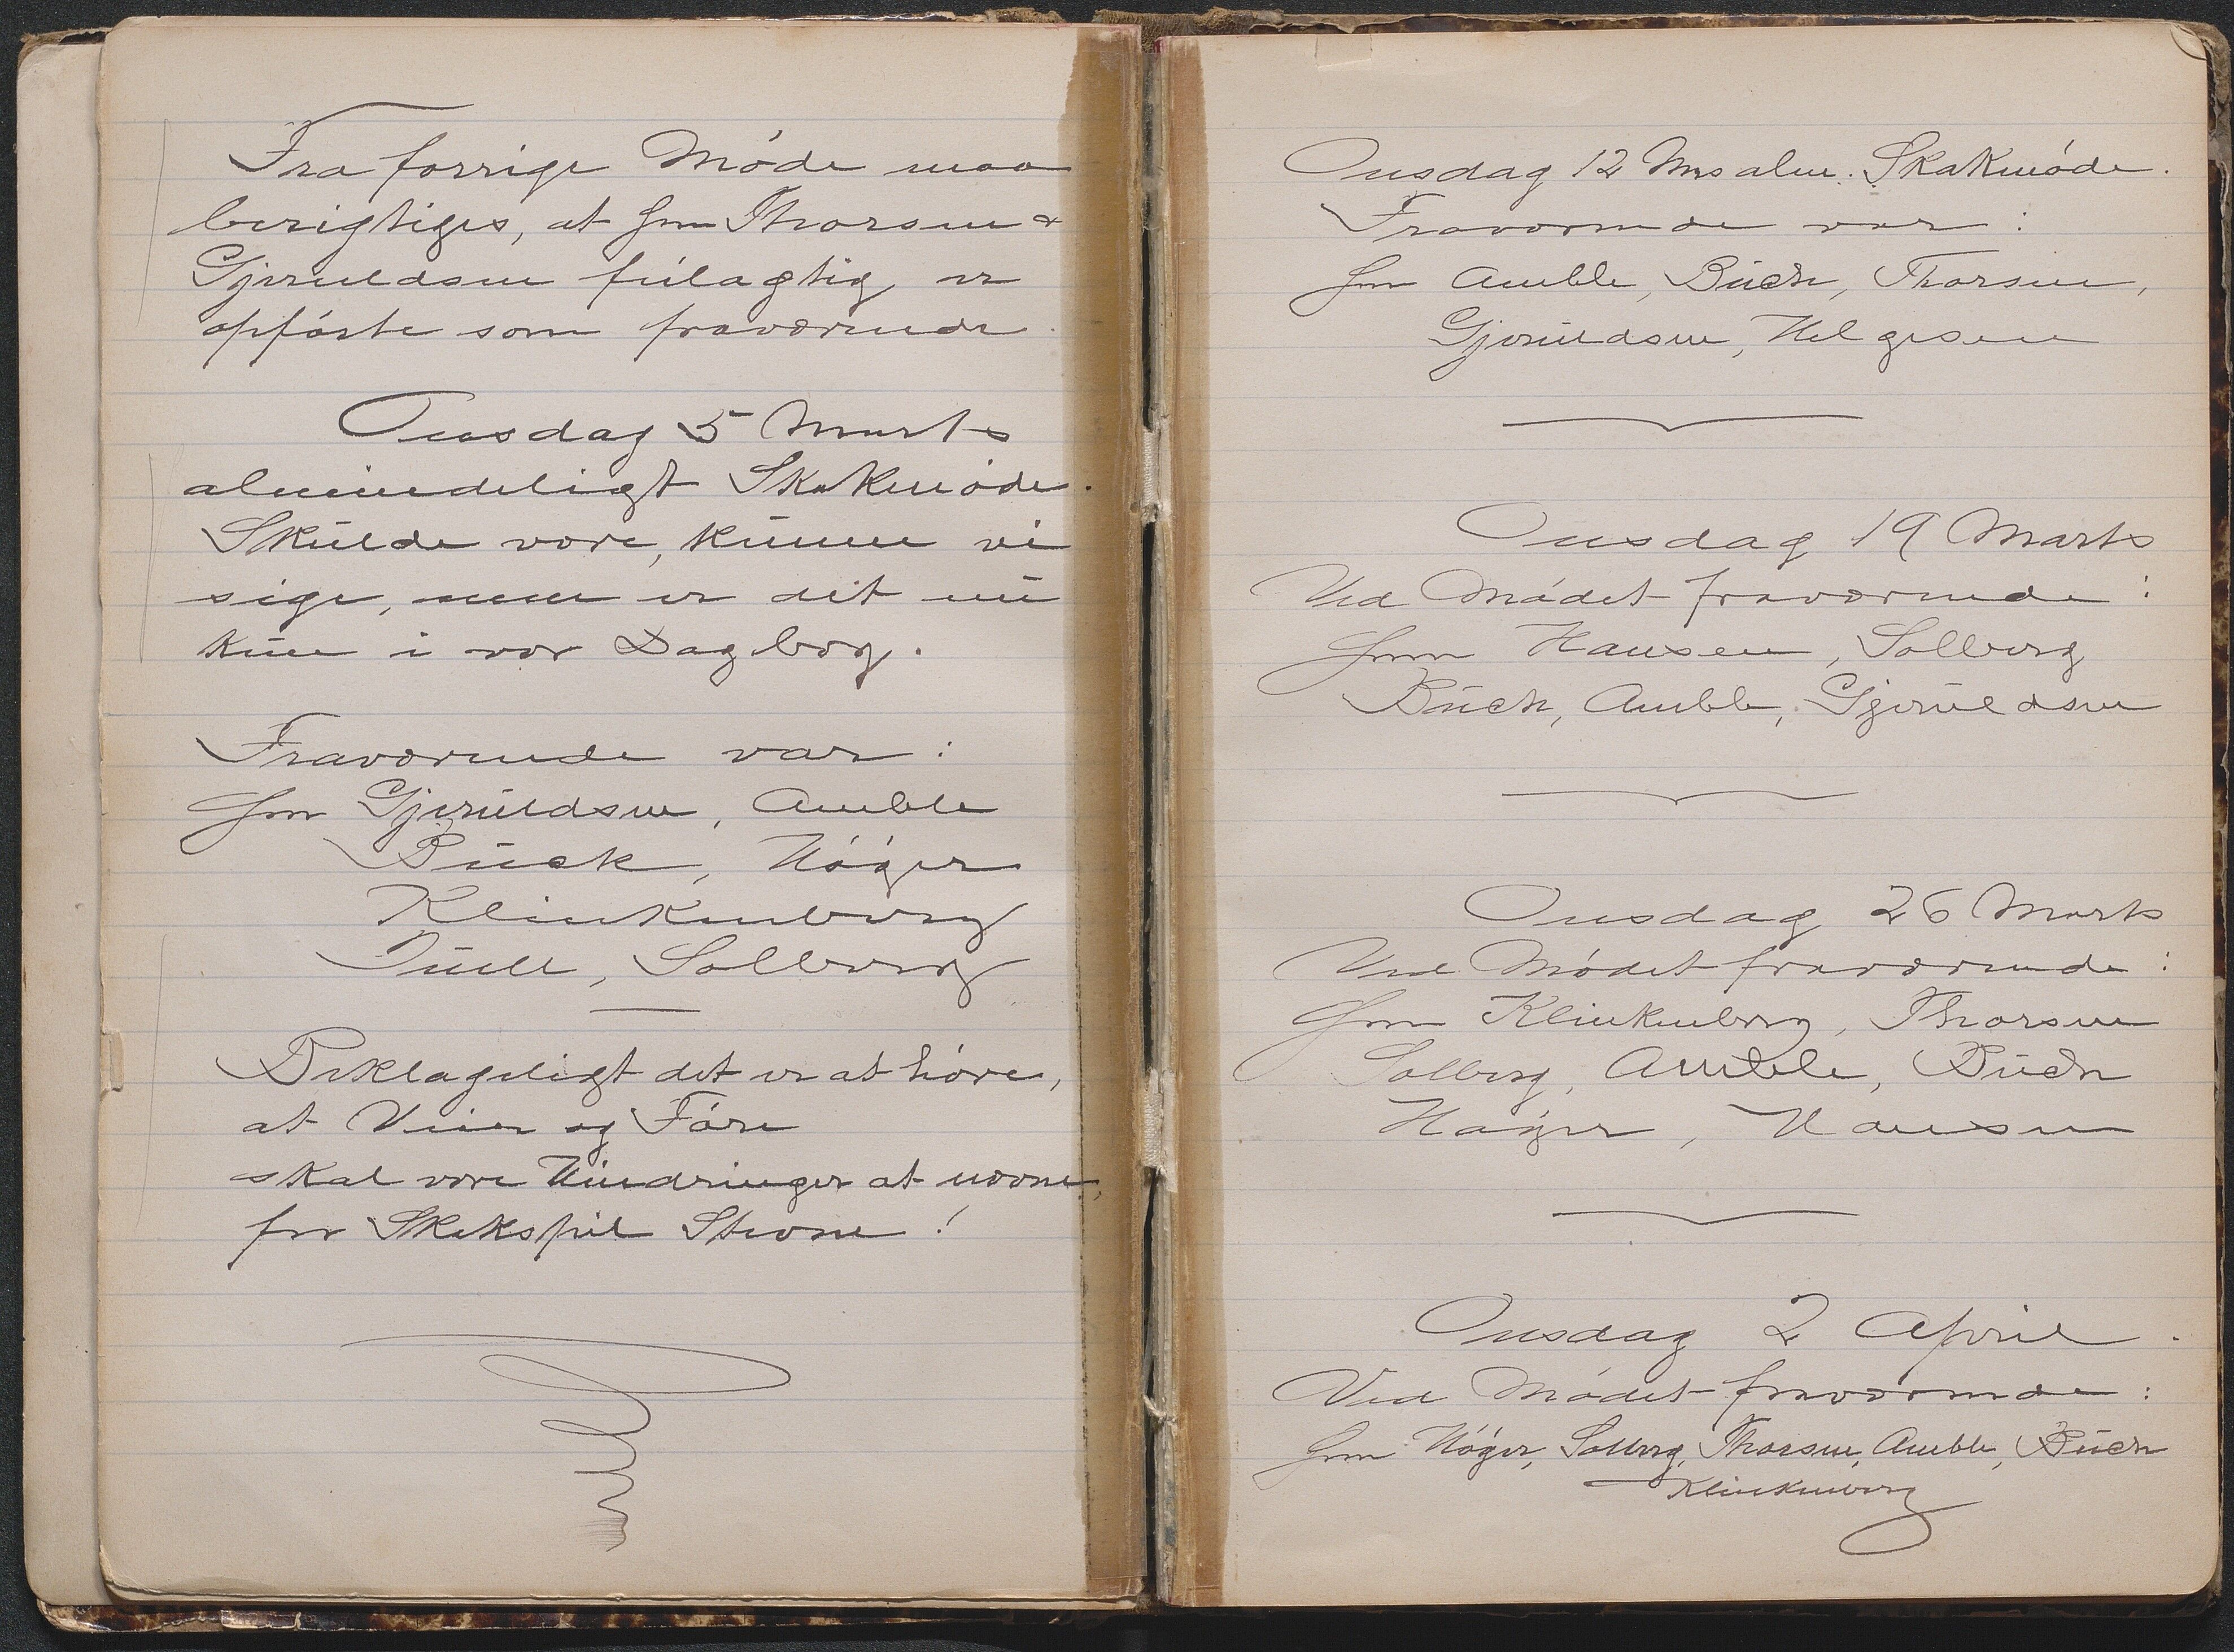 Fra forrige Møde maa
berigtiges, at Hrr Thorsen &
Gjeruldsen feilagtig er
opførte som fraværende.
Onsdag 5 Marts
almindeligt Skakmøde.
Skulde være, kunne vi
sige, men er det nu
kun i vor Dagbog.
Fraværende var:
Hrr Gjeruldsen, Amble
Buch, Høyer
Klinkenberg
Juell, Solberg
Beklageligt det er at høre,
at Veier og Føre
skal være Hindringer at nævne,
for Skakspil Stævne!
Onsdag 12 Mrs alm. Skakmøde.
Fraværende var:
Hrr Amble, Buch, Thorsen,
Gjeruldsen, Helgesen
Onsdag 19 Marts
Ved Mødet fraværende:
Hrr Hansen, Solberg
Buch, Amble, Gjeruldsen
Onsdag 26 Marts
Ved Mødet fraværende:
Hrr Klinkenberg, Thorsen
Solberg, Amble, Buch
Høyer, Hansen
Onsdag 2 April.
Ved Mødet fraværende:
Hrr Høyer, Solberg, Thorsen, Amble, Buch
Klinkenberg